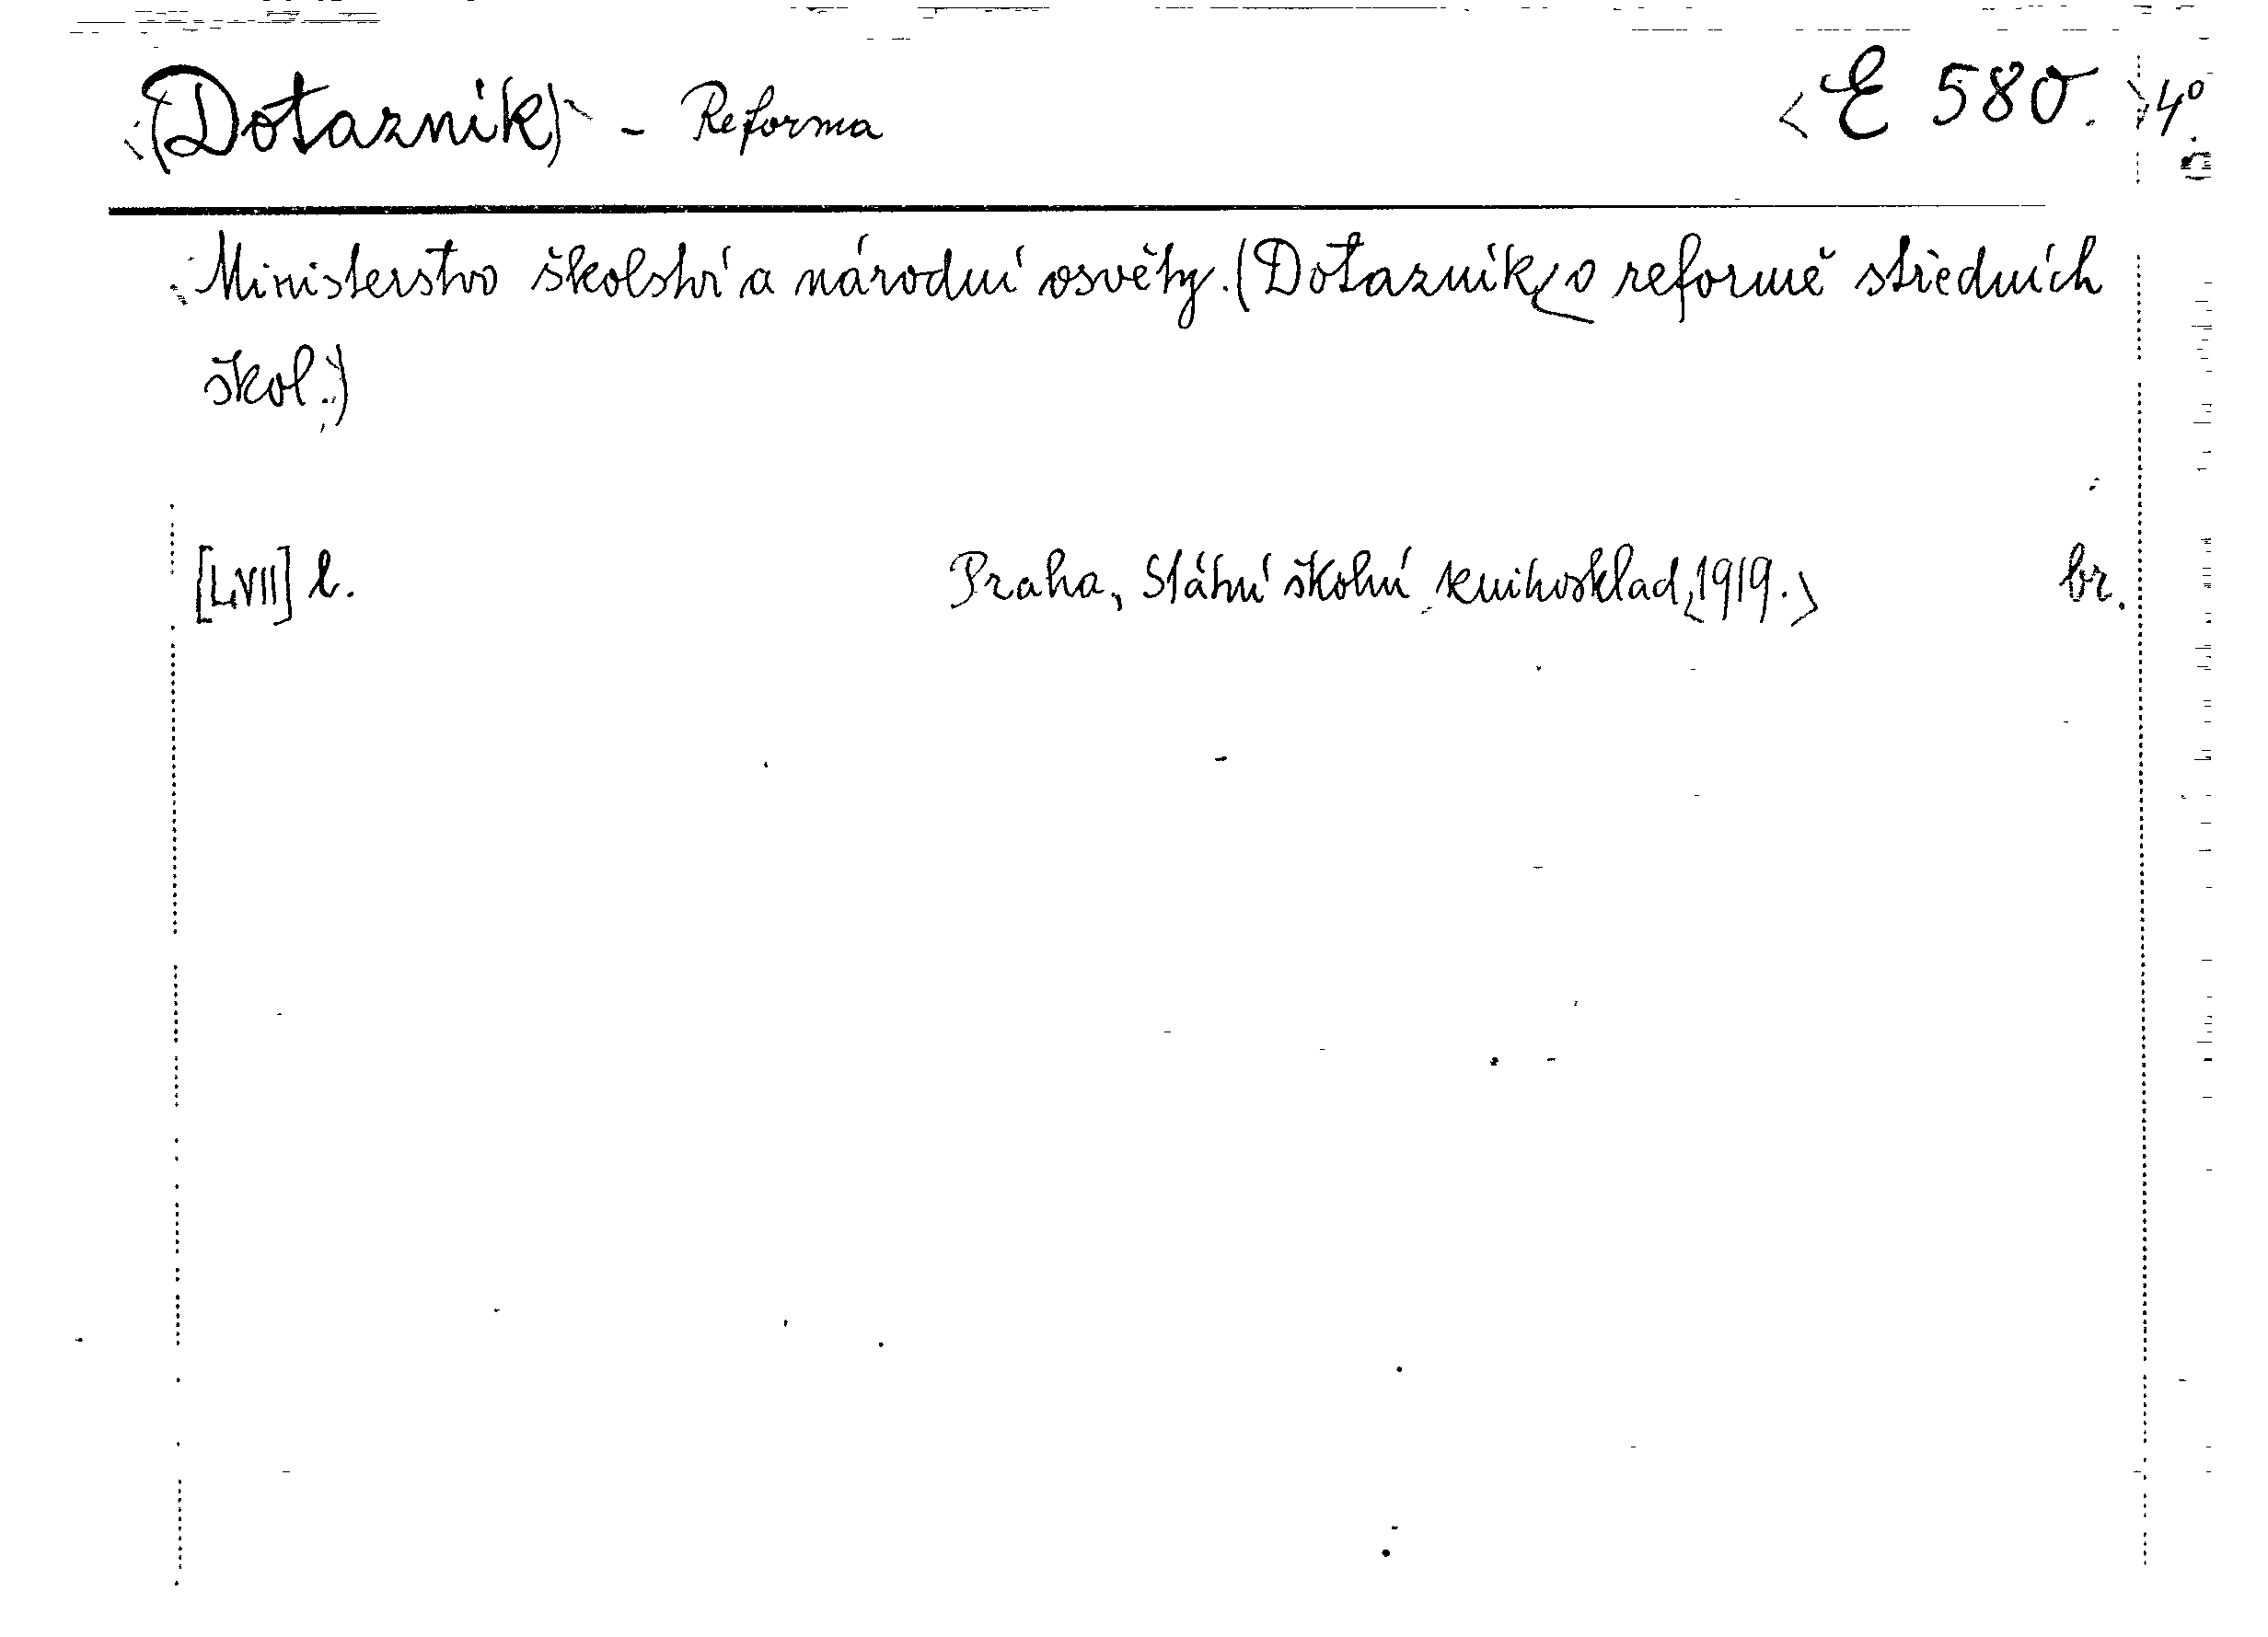 (Dotazník) - Reforma <E 580. 4°
Ministerstvo školství a národní osvěty. (Dotazník o reformě středních
škol.)
[LVII] l. Praha, Státní školní knihosklad, <1919.> br.